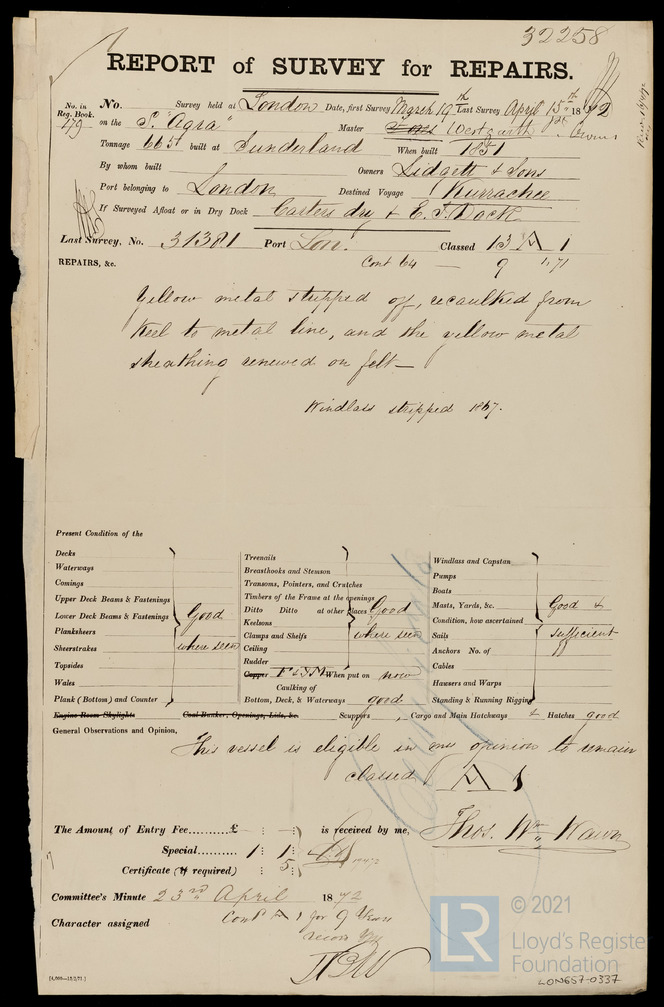 32258
REPORT of SURVEY for REPAIRS.
No. in Reg. Book. 179
No. Survey held at London Date, first Survey March 19th Last Survey April 15th 1872
on the S. "Agra" Master Westgarth
Tonnage 665 built at Sunderland When built 1851
By whom built Owners Lidgett & Sons
Port belonging to London Destined Voyage Kurrachee
If Surveyed Afloat or in Dry Dock Carters dry & E. I. Dock
Last Survey, No. 31381 Port Lon: Classed 13 A 1
REPAIRS, &c. Cont 64 — 9 "/71
Yellow metal stripped off, recaulked from
Keel to metal line, and the yellow metal
sheathing renewed on felt—
Windlass stripped 1867.
Present Condition of the
Decks
Waterways
Comings
Upper Deck Beams & Fastenings
Lower Deck Beams & Fastenings
Planksheers
Sheerstrakes
Topsides
Wales
Plank (Bottom) and Counter
Good
where seen
Treenails
Breasthooks and Stemson
Transoms, Pointers, and Crutches
Timbers of the Frame at the openings
Ditto Ditto at other places
Keelsons
Clamps and Shelfs
Ceiling
Rudder
Good
where seen
Copper F & YM When put on now
Caulking of
Bottom, Deck, & Waterways good
Windlass and Capstan
Pumps
Boats
Masts, Yards, &c.
Condition, how ascertained
Sails
Anchors No. of
Cables
Hawsers and Warps
Standing & Running Rigging
Good &
sufficient
Engine Room Skylights Coal Bunker, Openings, Lids, &c. Scuppers , Cargo and Main Hatchways & Hatches good
General Observations and Opinion,
This vessel is eligible in my opinion to remain
classed A 1
The Amount of Entry Fee.........£ : : is received by me,
Special.......... 1 : 1 :
Certificate (if required) : 5 :
Thos. Wm. Wawn
Committee's Minute 23rd April 1872
Character assigned Contd A 1 for 9 Years
[4,000—18/2/71]
LR © 2021
Lloyd's Register
Foundation
LON657-0337